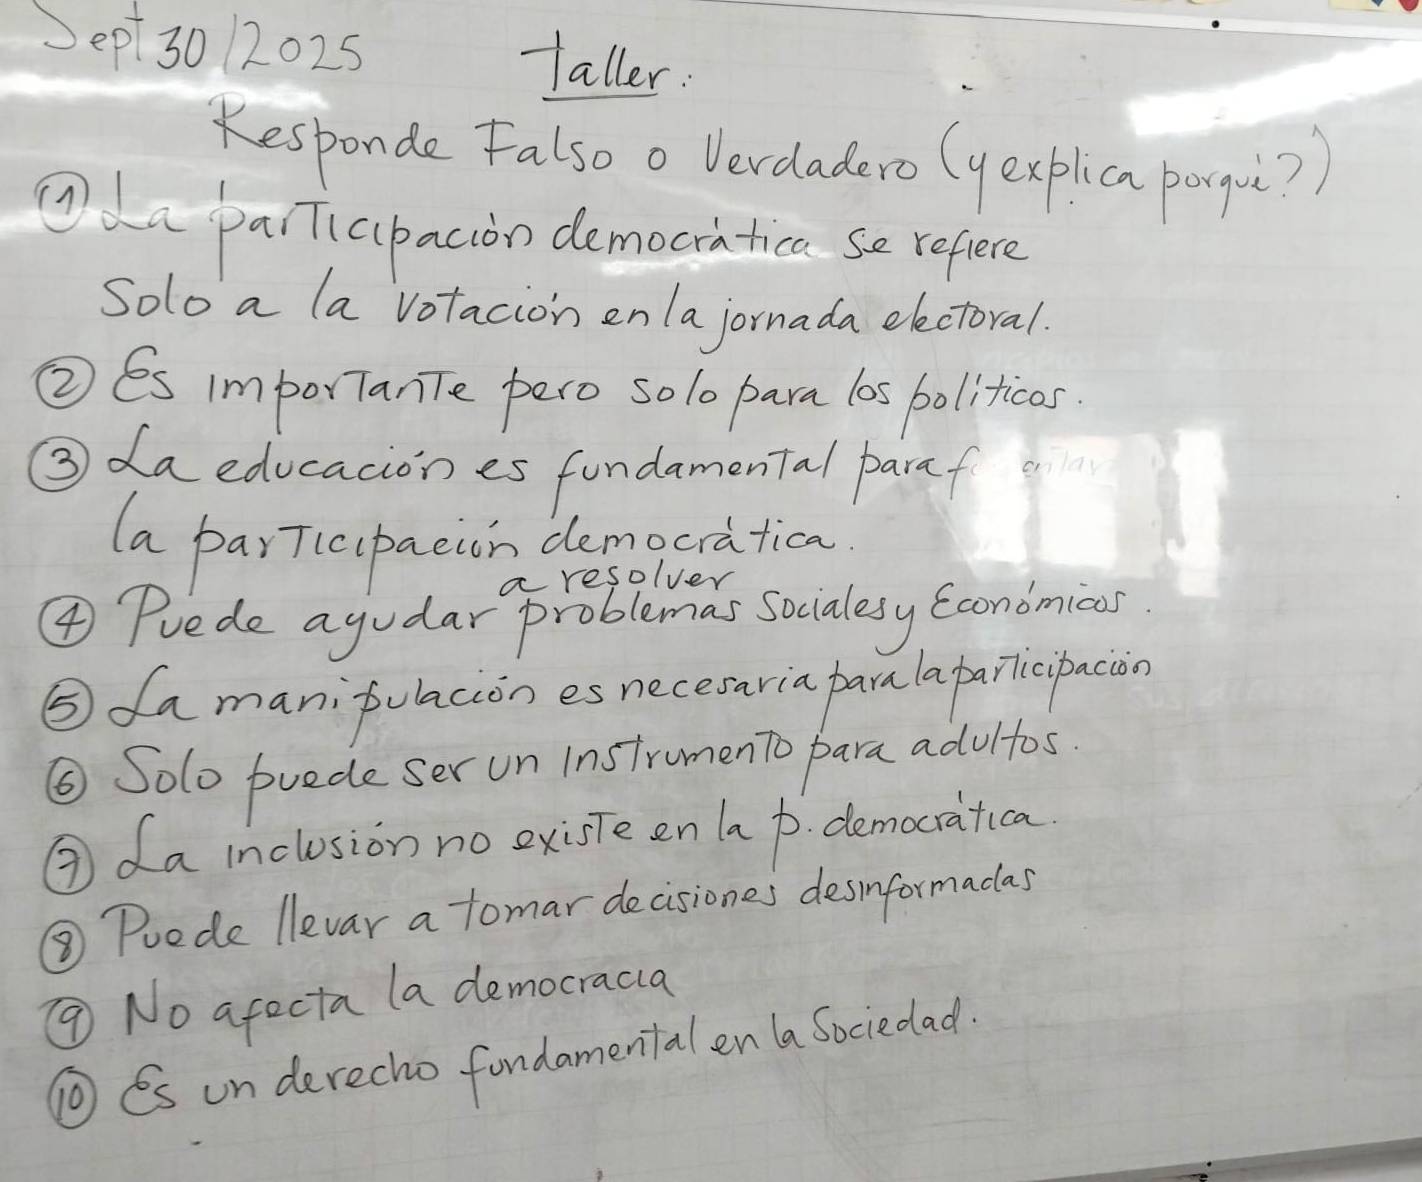 Sept 30/2025
Taller:
Responde Falso o Verdadero (y explica porqué?)
① La participación democrática se refiere
solo a la votación en la jornada electoral.
② Es importante pero solo para los políticos.
③ La educación es fundamental para
la participación democrática.
a resolver
④ Puede ayudar problemas sociales y Económicos.
⑤ La manipulación es necesaria para la participación
⑥ Solo puede ser un instrumento para adultos.
⑦ La inclusión no existe en la p. democrática.
⑧ Puede llevar a tomar decisiones desinformadas
⑨ No afecta la democracia
⑩ Es un derecho fundamental en la Sociedad.